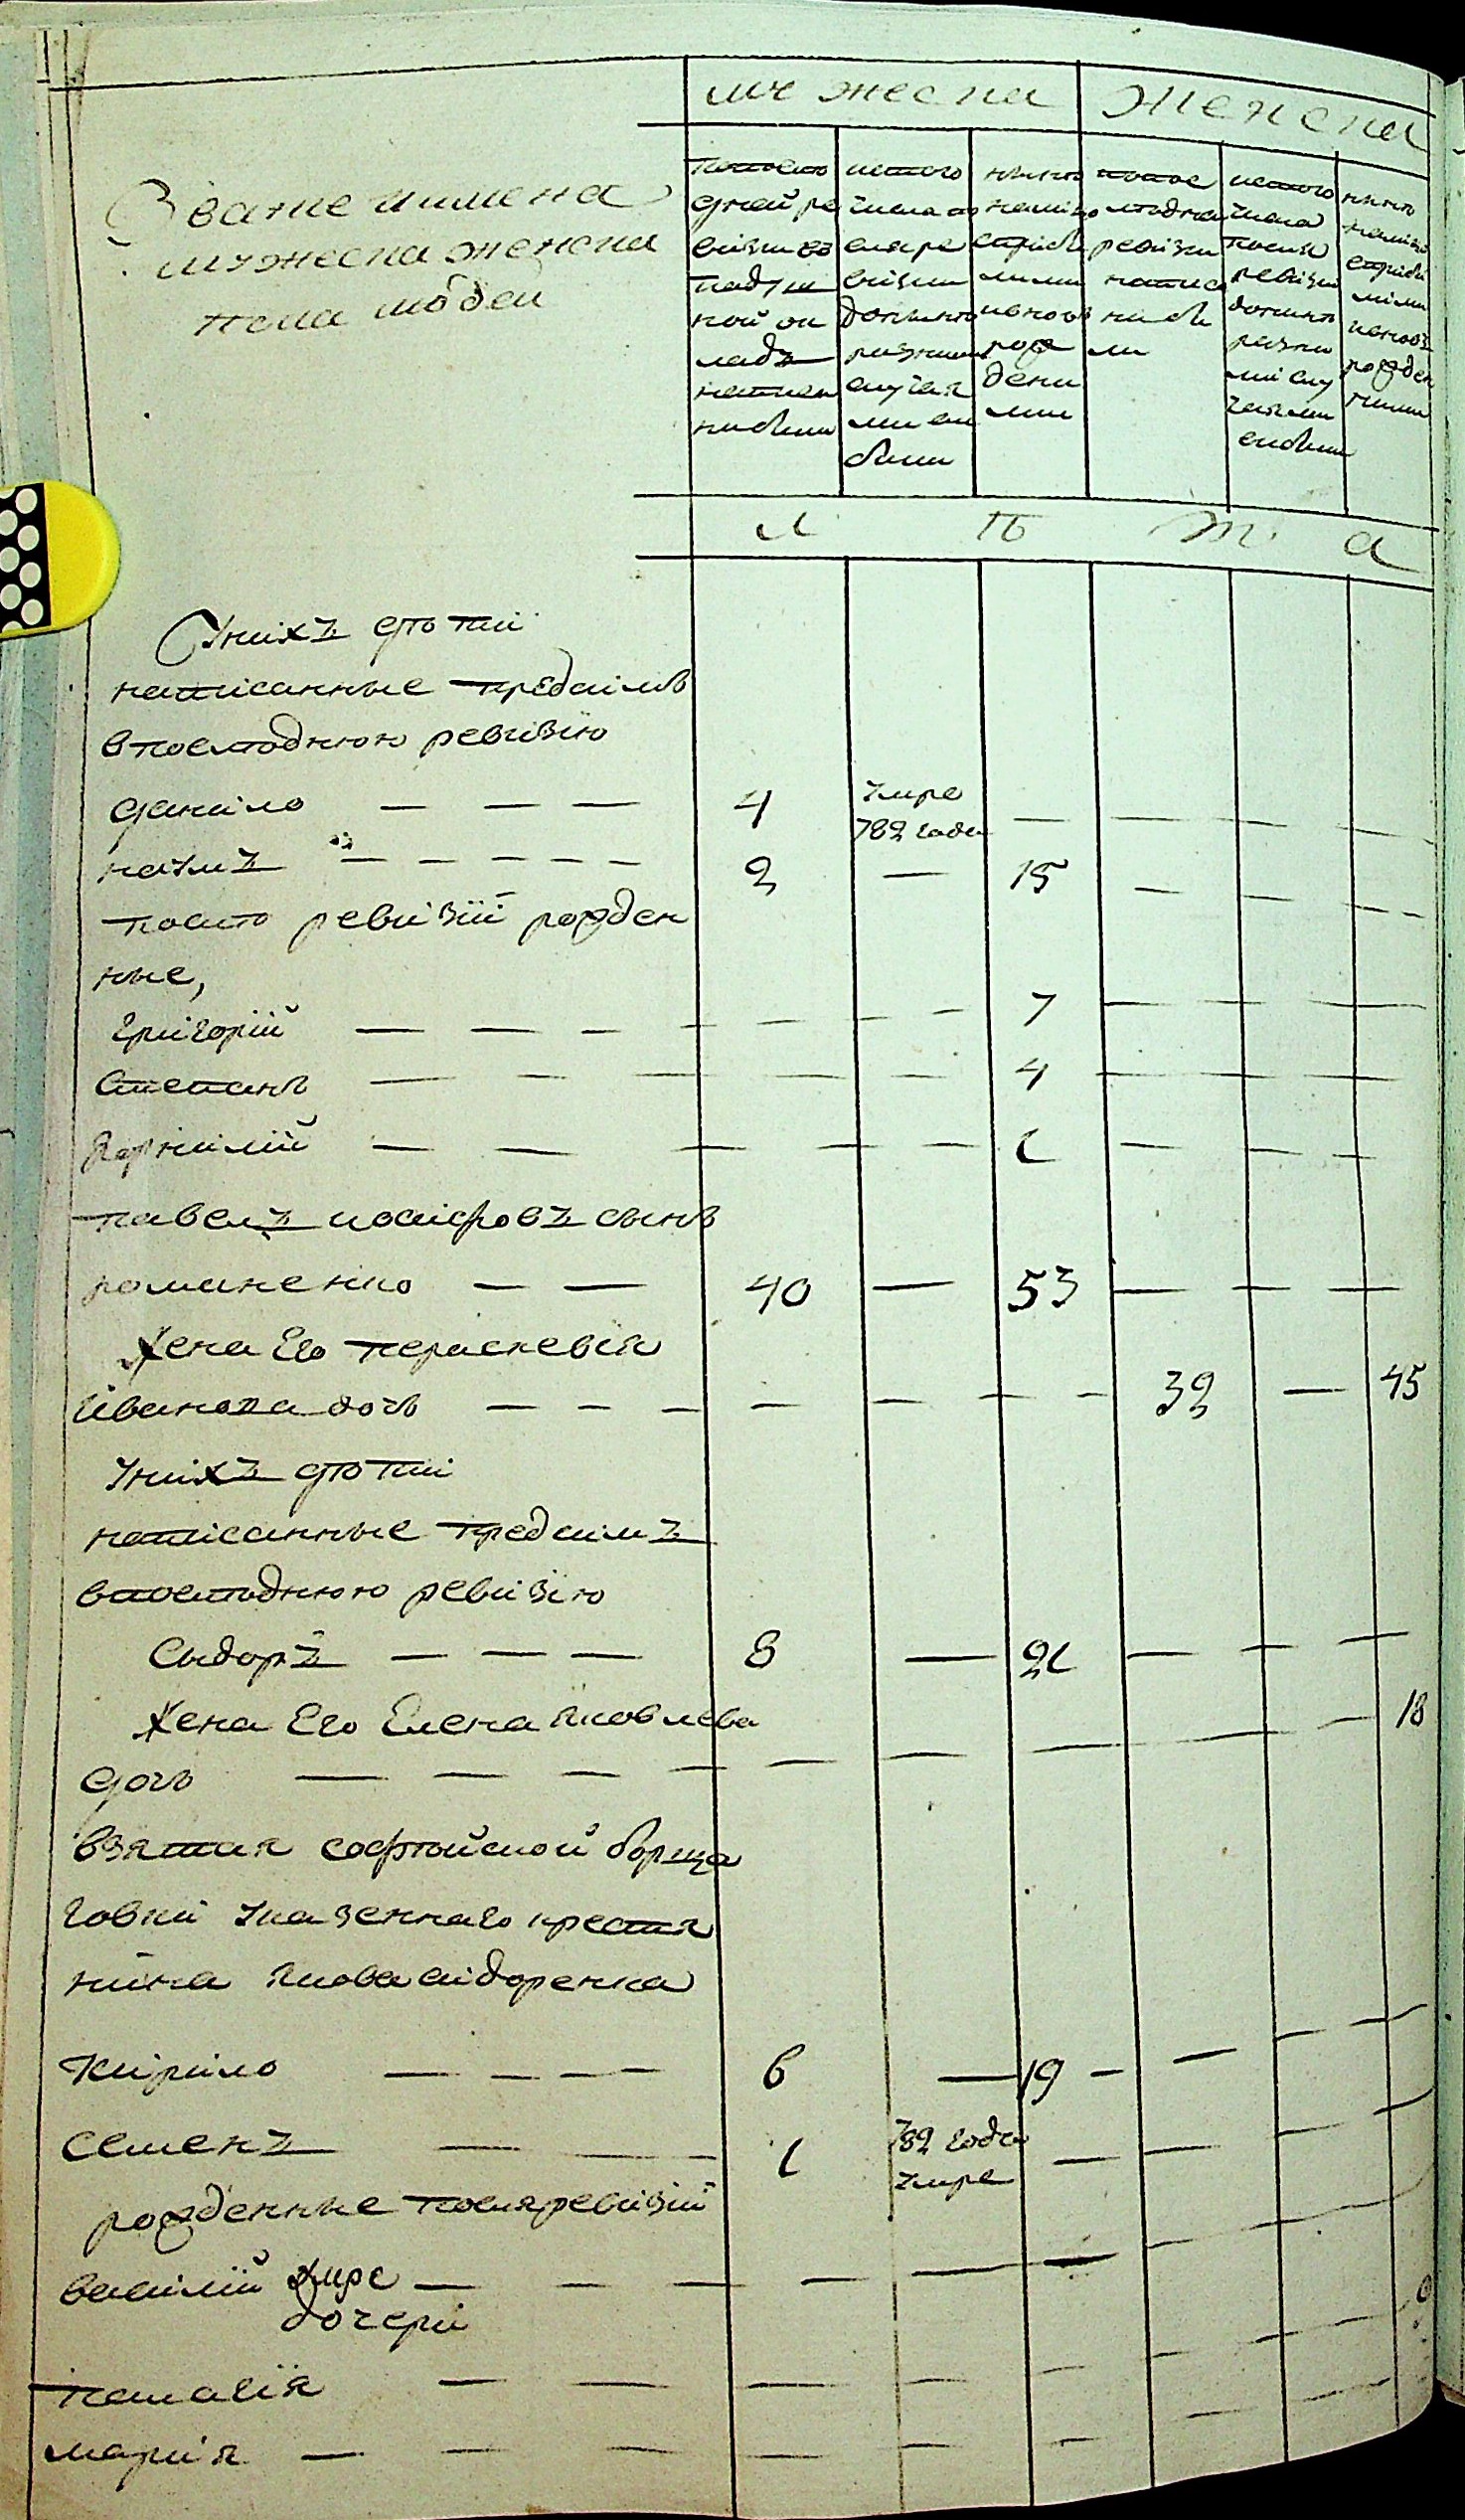 мужеска женска
Звание и имена
мужеска женска
пола людей
последней ревизии въ подушной окладъ написаны были
исъ того числа после ревизии до ныне разными случаями выбыли
ныне на лицо с прибылыми и вновь рожденными
по последней ревизии написаны были
исъ того числа после ревизии до ныне разными случаями выбыли
ныне на лицо с прибылыми и вновь рожденными
л ѣ т а
Унихъ дѣти
написанные предъ симъ
в последнюю ревизию
данило — — — 4 умре 782 года — — — —
наумъ — — — — — 2 — 15 — — —
после ревизіи рожден
ные,
григорій — — — — — — — 7 — — —
степанъ — — — — — — 4 — — —
корнилій — — — — — 1 — — —
павелъ иосифовъ сынъ
романенко — — 40 — 53 — — —
Жена Его параскевія
Иванова дочь — — — — — — — 32 — 45
Унихъ дѣти
написанные предъ симъ
в последнюю ревизію
Сидоръ — — — 8 — 21 — — —
Жена Его Елена Яковлева
дочь — — — — — — — — 18
взятая софѣйской борща
говки казеннаго крестя
нина Якова сидоренка
Кирило — — — — 6 — 19 — — — —
Семенъ — — 1 782 года умре — — — —
рожденные после ревизіи
василій умре — — — — — — — — —
дочери
наталія — — — — — — — —
марія — — — — — — — —